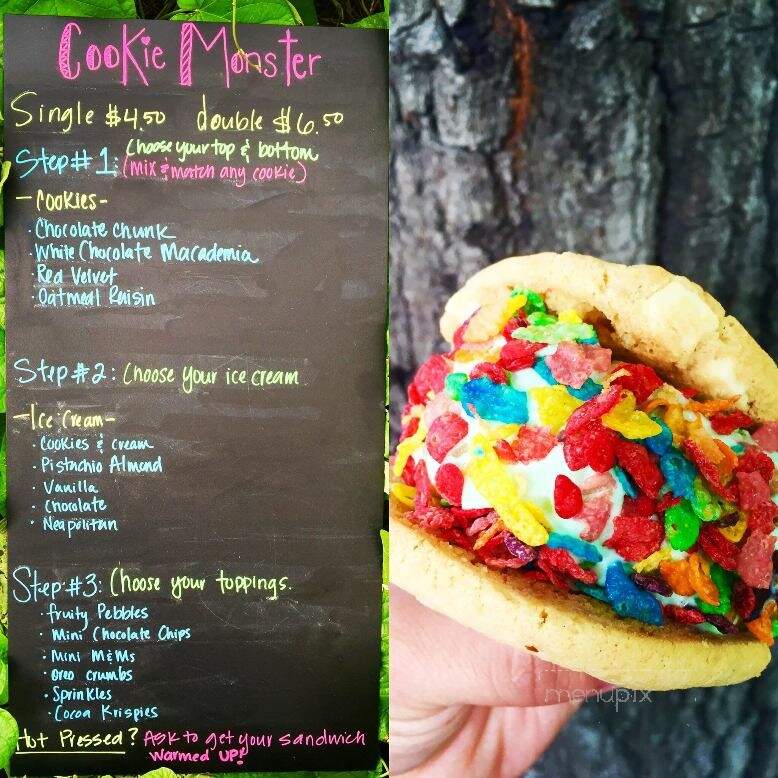 Cookie Monster
Single $4.50 double $6.50
Step#1: Choose your top & bottom
(mix & match any cookie)
-Cookies-
· Chocolate chunk
· White Chocolate Macadamia
· Red Velvet
· Oatmeal Raisin
Step#2: Choose your ice cream
-Ice Cream-
· Cookies & cream
· Pistachio Almond
· Vanilla
· Chocolate
· Neapolitan
Step#3: Choose your toppings.
· fruity Pebbles
· Mini Chocolate Chips
· Mini M&Ms
· Oreo crumbs
· Sprinkles
· Cocoa Krispies
Hot Pressed? Ask to get your sandwich
Warmed UP!
menupix